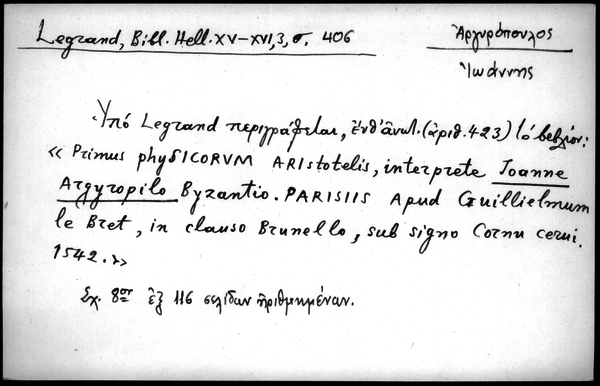 Legrand, Bibl. Hell. XV–XVI, 3, σ. 406
Ἀργυρόπουλος
Ἰωάννης
Ὑπό Legrand περιγράφεται, ἔνθ' ἀνωτ. (ἀριθ. 423) τό βιβλίον:
« Primus physICORVM ARIstotelis, interprete Joanne
Argyropilo Byzantio. PARISIIS Apud Guillielmum
le Bret, in clauso Brunello, sub signo Cornu cerui.
1542. »
Σχ. 8ον ἐξ 116 σελίδων ἠριθμημένων.